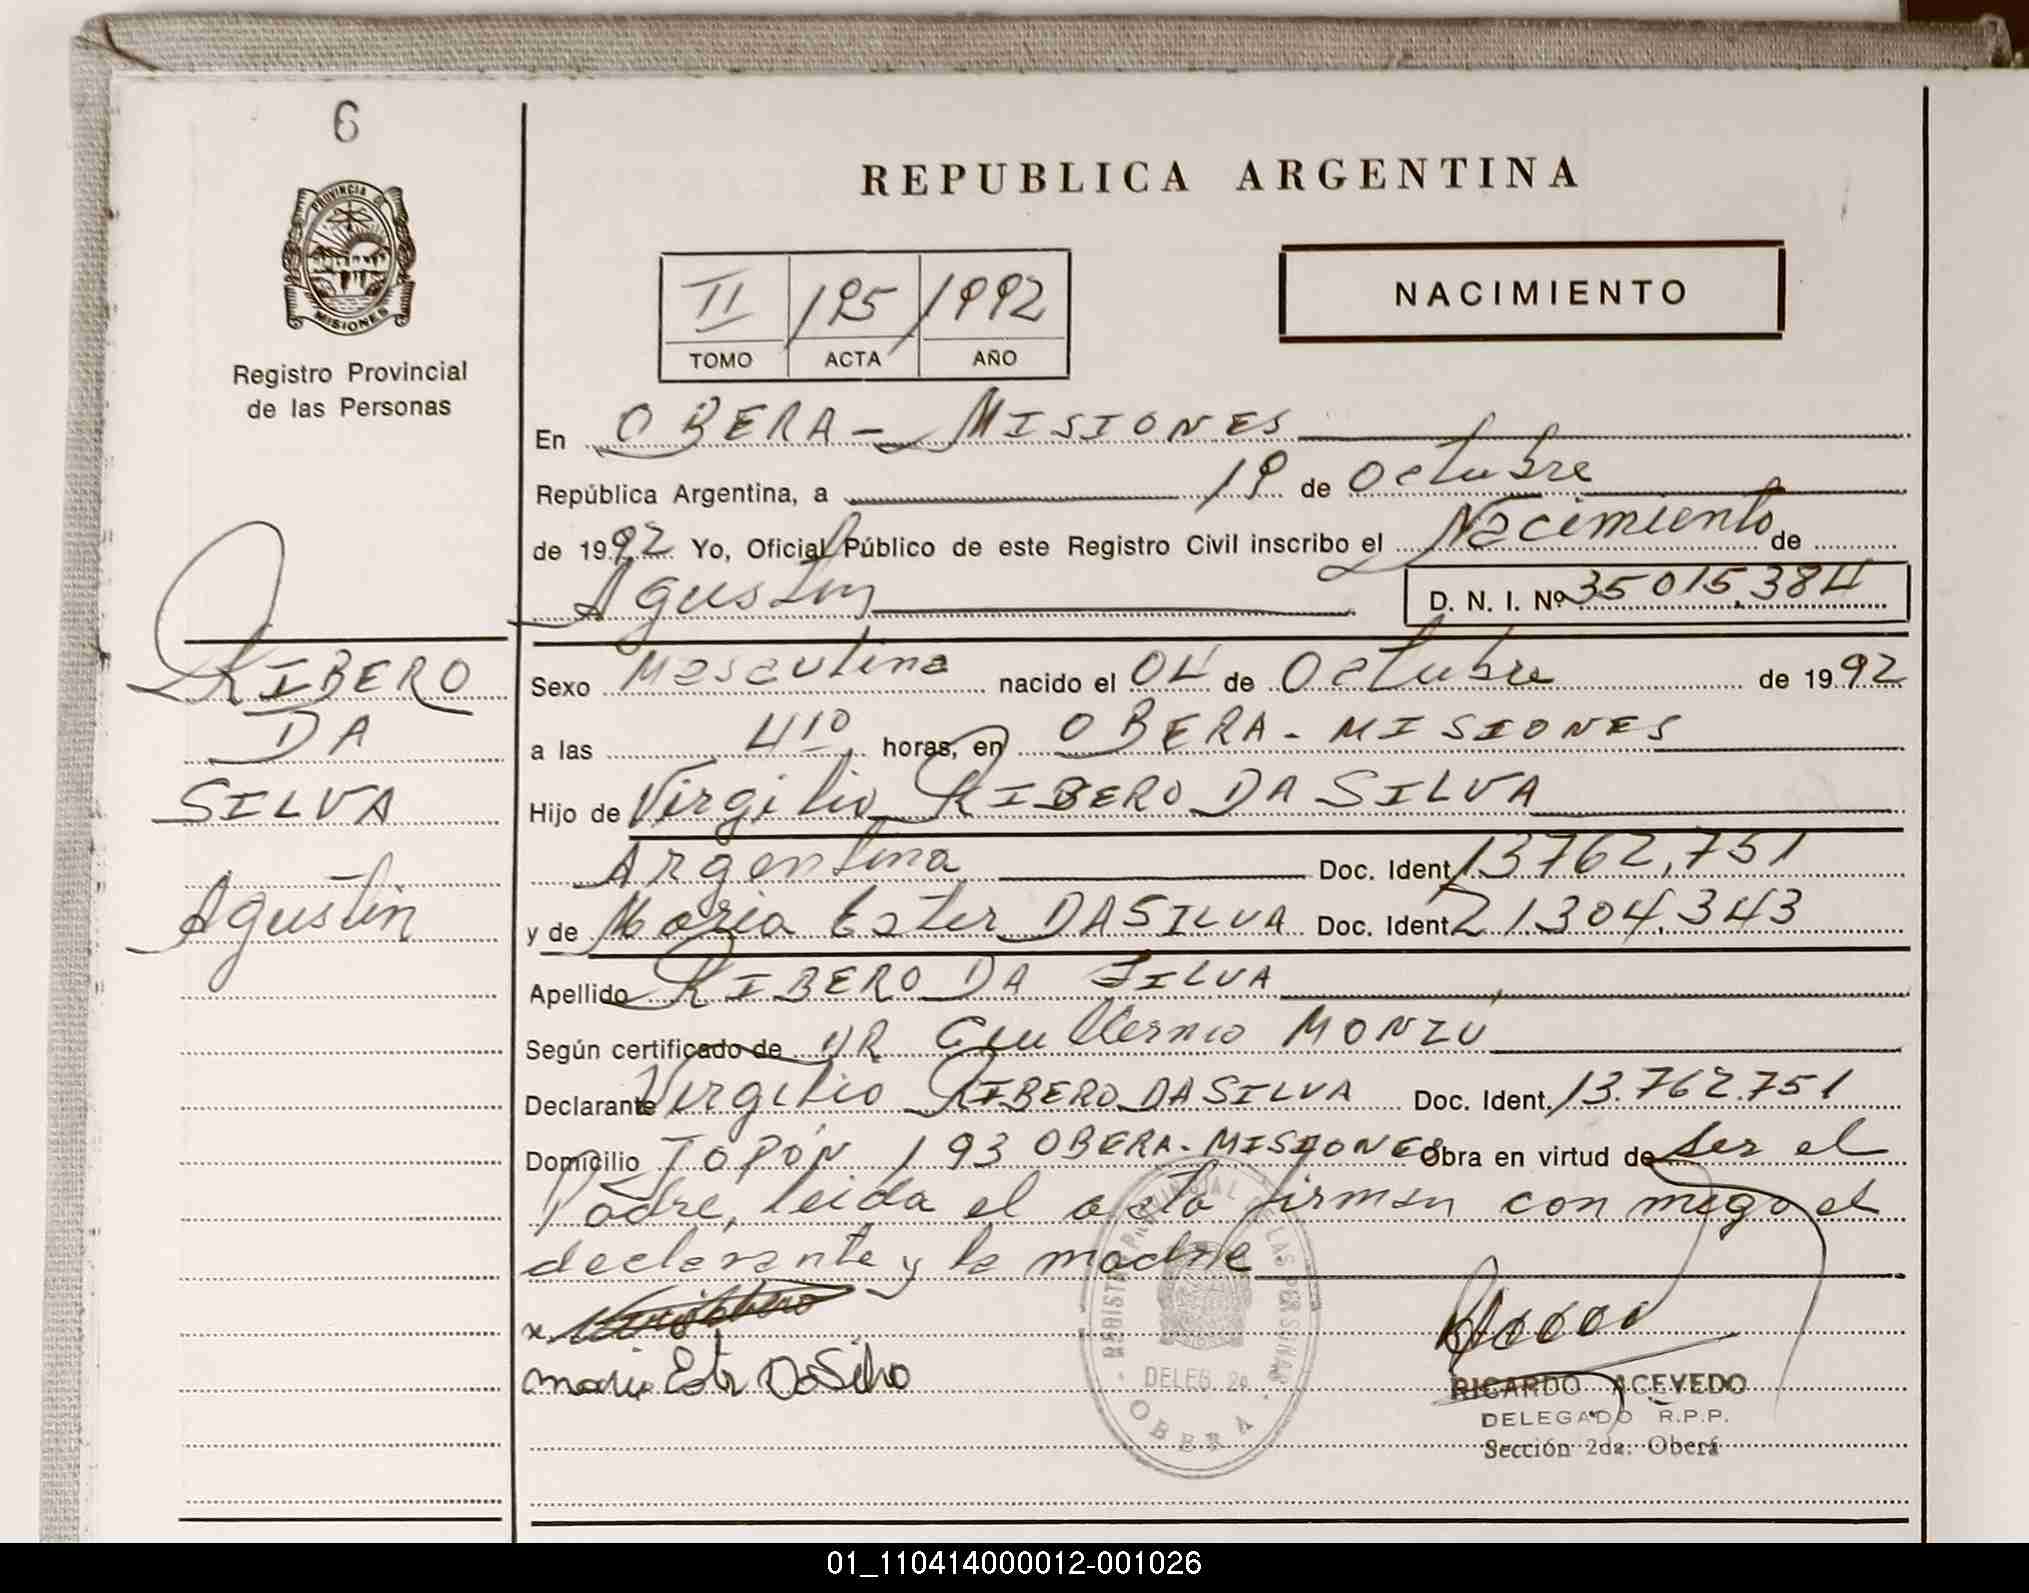 6
REPUBLICA ARGENTINA
PROVINCIA DE
MISIONES
II 195 1992
TOMO ACTA AÑO
NACIMIENTO
Registro Provincial
de las Personas
En OBERA - MISIONES
República Argentina, a 19 de Octubre
de 1992 Yo, Oficial Público de este Registro Civil inscribo el Nacimiento de
Agustin D. N. I. Nº 35015.384
RIBERO
DA
SILVA
Agustin
Sexo Masculino nacido el 04 de Octubre de 1992
a las 410 horas, en OBERA - MISIONES
Hijo de Virgilio RIBERO DA SILVA
Argentina Doc. Ident. 13762.751
y de Maria Ester DA SILVA Doc. Ident. 21304.343
Apellido RIBERO DA SILVA
Según certificado de DR Guillermo MONZU
Declarante Virgilio RIBERO DA SILVA Doc. Ident. 13.762.751
Domicilio JAPÓN 193 OBERA - MISIONES Obra en virtud de ser el
Padre, leida el acta firman con migo el
declarante y la madre
x
Maria Ester Da Silva
REGISTRO PROVINCIAL DE LAS PERSONAS
DELEG. 2a
OBERA
RICARDO ACEVEDO
DELEGADO R.P.P.
Sección 2da. Oberá
01_110414000012-001026